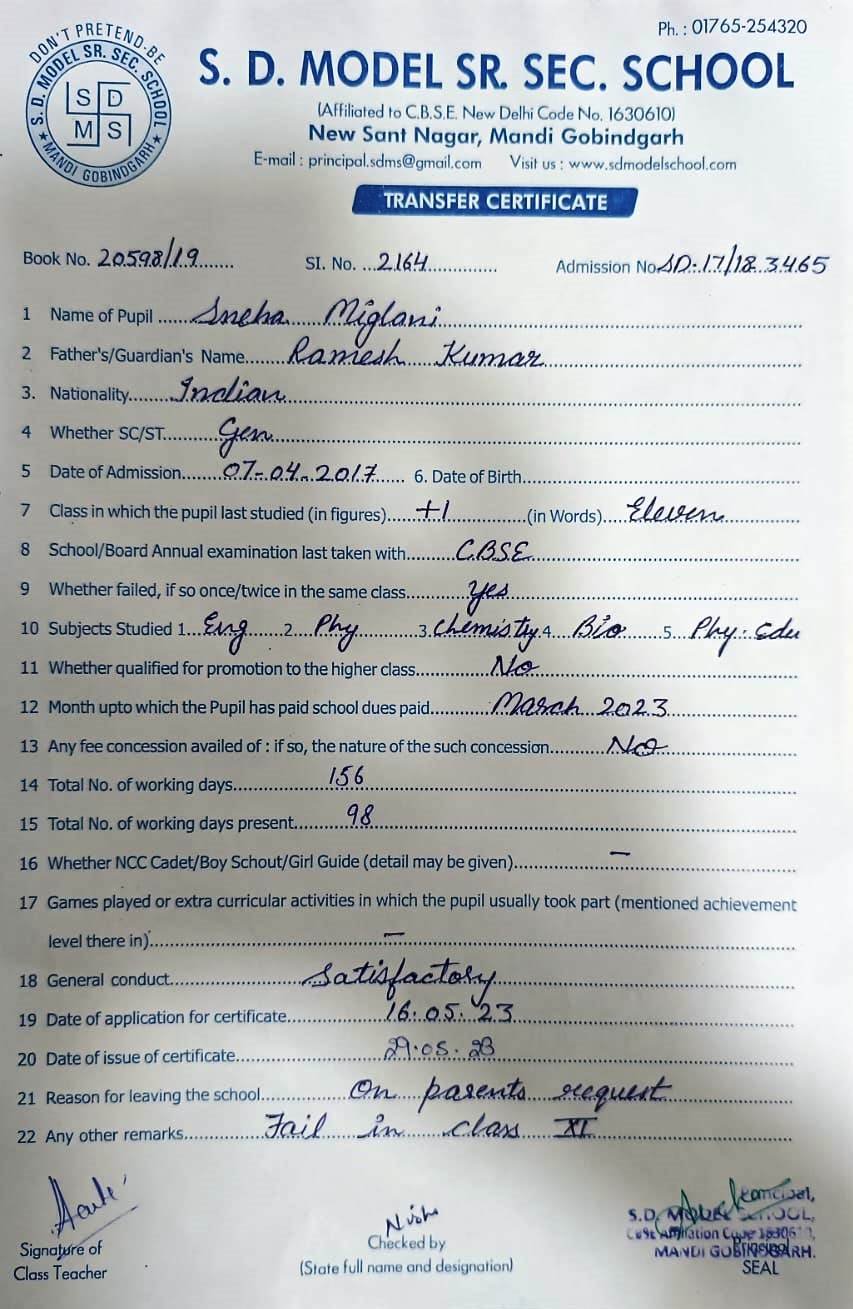 Ph. : 01765-254320
DON'T PRETEND-BE
S. D. MODEL SR. SEC. SCHOOL
★ MANDI GOBINDGARH ★
S D
M S
S. D. MODEL SR. SEC. SCHOOL
(Affiliated to C.B.S.E. New Delhi Code No. 1630610)
New Sant Nagar, Mandi Gobindgarh
E-mail : principal.sdms@gmail.com Visit us : www.sdmodelschool.com
TRANSFER CERTIFICATE
Book No. 20598/19 SI. No. 2164 Admission No. SD-17/18 3465
1 Name of Pupil Sneha Miglani
2 Father's/Guardian's Name Ramesh Kumar
3. Nationality Indian
4 Whether SC/ST Gen
5 Date of Admission 07-04-2017 6. Date of Birth
7 Class in which the pupil last studied (in figures) +1 (in Words) Eleven
8 School/Board Annual examination last taken with CBSE
9 Whether failed, if so once/twice in the same class yes
10 Subjects Studied 1 Eng 2 Phy 3 Chemistry 4 Bio 5 Phy. Edu
11 Whether qualified for promotion to the higher class No
12 Month upto which the Pupil has paid school dues paid March 2023
13 Any fee concession availed of : if so, the nature of the such concession No
14 Total No. of working days 156
15 Total No. of working days present 98
16 Whether NCC Cadet/Boy Schout/Girl Guide (detail may be given) –
17 Games played or extra curricular activities in which the pupil usually took part (mentioned achievement
level there in) –
18 General conduct Satisfactory
19 Date of application for certificate 16.05.23
20 Date of issue of certificate 29.05.23
21 Reason for leaving the school On parents request
22 Any other remarks Fail in class XI
Signature of
Class Teacher
Checked by
(State full name and designation)
Principal,
S.D. MODEL SCHOOL,
MANDI GOBINDGARH.
Principal
SEAL